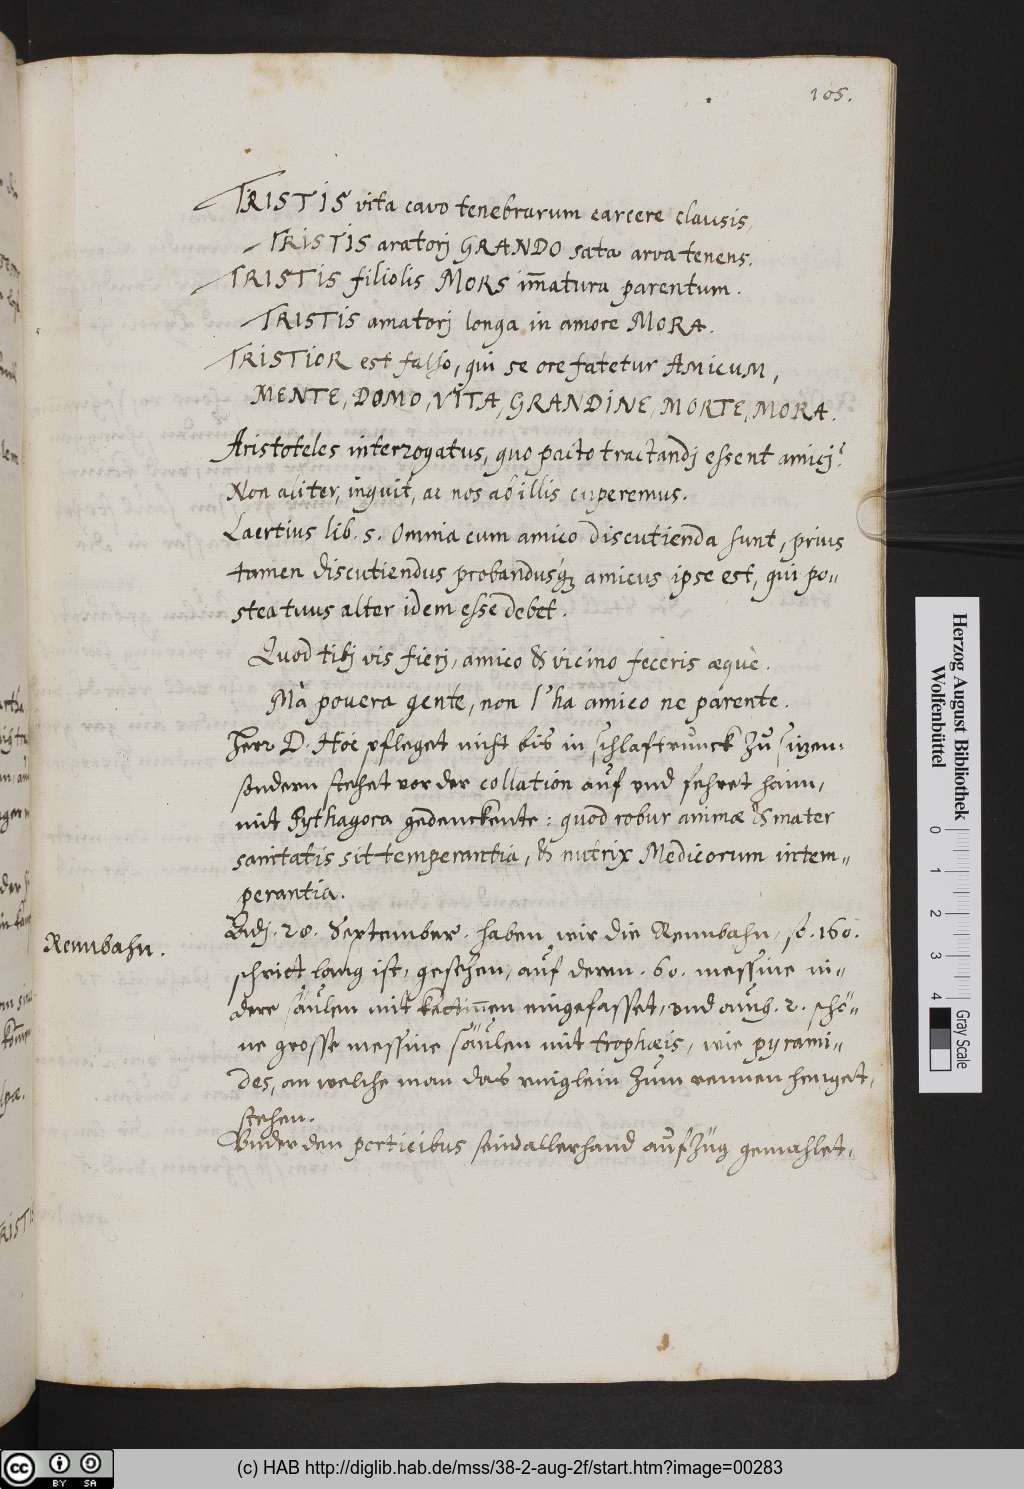 105.
TRISTIS vita cavo tenebrarum carcere clausis,
TRISTIS aratorj GRANDO sata arva tenens.
TRISTIS filiolis MORS im̄atura parentum.
TRISTIS amatorj longa in amore MORA.
TRISTIOR est falso, qui se ore fatetur AMICUM,
MENTE, DOMO, VITA, GRANDINE, MORTE, MORA.
Aristoteles interrogatus, quo pacto tractandj essent amicj?
Non aliter, inquit, ac nos ab illis cuperemus.
Laertius lib. 5. Omnia cum amico discutienda sunt, prius
tamen discutiendus probandusq; amicus ipse est, qui po-
stea tuus alter idem esse debet.
Quod tibj vis fierj, amico & vicino feceris æquè.
Mà povera gente, non l'ha amico ne parente.
Herr D. Höe pfleget nicht bis in schlaftrunck zu sitzen.
sondern stehet vor der collation auf vnd fehret haim,
mit Pythagora gedenckente: quod robur animæ & mater
sanitatis sit temperantia, & nutrix Medicorum intem-
perantia.
Rennbahn.
Adj. 28. September. haben wir die Rennbahn, so. 160.
schriet lang ist, gesehen, auf deren. 60. messine ni-
dere säulen mit eingefasset, vnd 2. schö-
ne grosse messine säulen mit trophæis, wie pyrami-
des, an welche man das ringlein zum rennen henget,
stehen.
Vnder den porticibus seind allerhand aufzüg gemahlet,
Herzog August Bibliothek
Wolfenbüttel
0 1 2 3 4
Gray Scale
cc BY SA
(c) HAB http://diglib.hab.de/mss/38-2-aug-2f/start.htm?image=00283